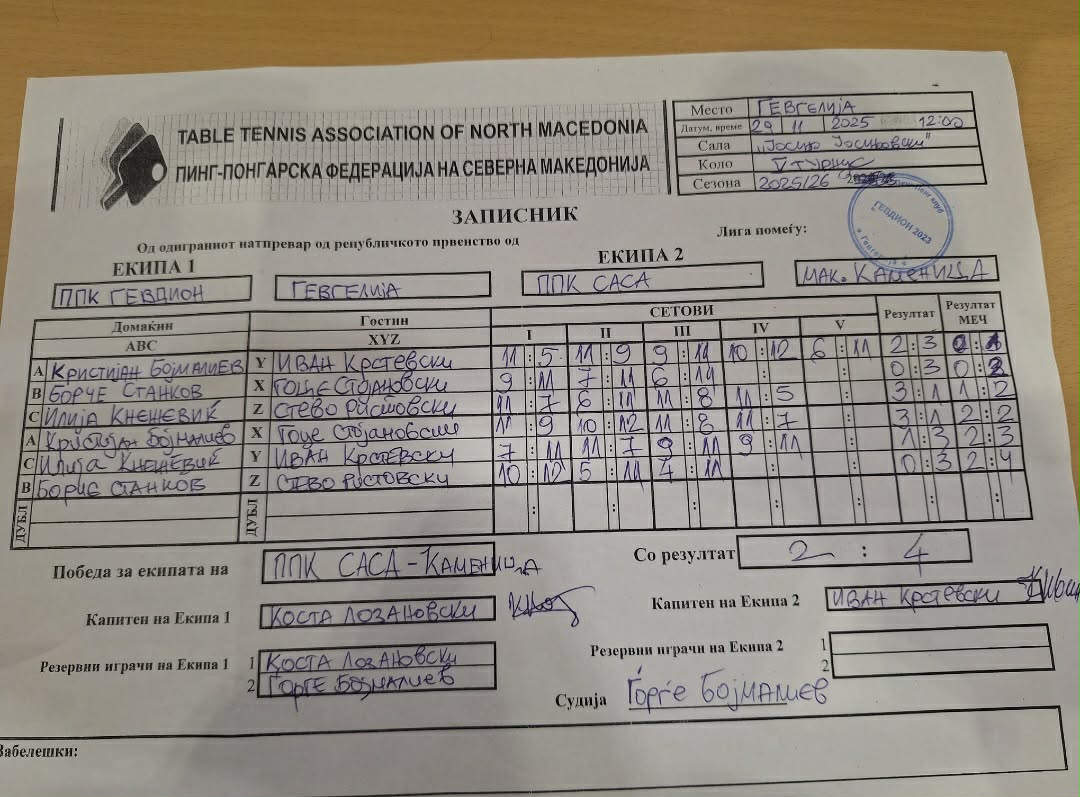 TABLE TENNIS ASSOCIATION OF NORTH MACEDONIA
ПИНГ-ПОНГАРСКА ФЕДЕРАЦИЈА НА СЕВЕРНА МАКЕДОНИЈА
Место ГЕВГЕЛИЈА
Датум, време 29 11 2025 12:00
Сала „Јосиф Јосифовски"
Коло V ТУРНУС
Сезона 2025/26
ГЕВДИОН 2023
ЗАПИСНИК
Од одиграниот натпревар од републичкото првенство од Лига помеѓу:
ЕКИПА 1 ЕКИПА 2
ППК ГЕВДИОН ГЕВГЕЛИЈА ППК САСА МАК. КАМЕНИЦА
Домаќин Гостин СЕТОВИ Резултат Резултат МЕЧ
ABC XYZ I II III IV V
A Кристијан Бојмалиев Y ИВАН Крстевски 11:5 11:9 9:11 10:12 6:11 2:3 0:1
B БОРЧЕ СТАНКОВ X ГОЦЕ СТОЈАНОВСКИ 9:11 7:11 6:11 0:3 0:2
C ИЛИЈА КНЕЖЕВИЌ Z СТЕВО РИСТОВСКИ 11:7 6:11 11:8 11:5 3:1 1:2
A Кристијан Бојмалиев X Гоце Стојановски 11:9 10:12 11:8 11:7 3:1 2:2
C Илија КНЕЖЕВИЌ Y ИВАН Крстевски 7:11 11:7 9:11 9:11 1:3 2:3
B БОРЧЕ СТАНКОВ Z СТЕВО РИСТОВСКИ 10:12 5:11 7:11 0:3 2:4
ДУБЛ ДУБЛ : : : : : : :
Победа за екипата на ППК САСА-КАМЕНИЦА Со резултат 2 : 4
Капитен на Екипа 1 КОСТА ЛОЗАНОВСКИ Капитен на Екипа 2 ИВАН Крстевски
Резервни играчи на Екипа 1 1 КОСТА ЛОЗАНОВСКИ Резервни играчи на Екипа 2 1
2 ЃОРЃЕ БОЈМАЛИЕВ 2
Судија Ѓорѓе БОЈМАЛИЕВ
Забелешки: